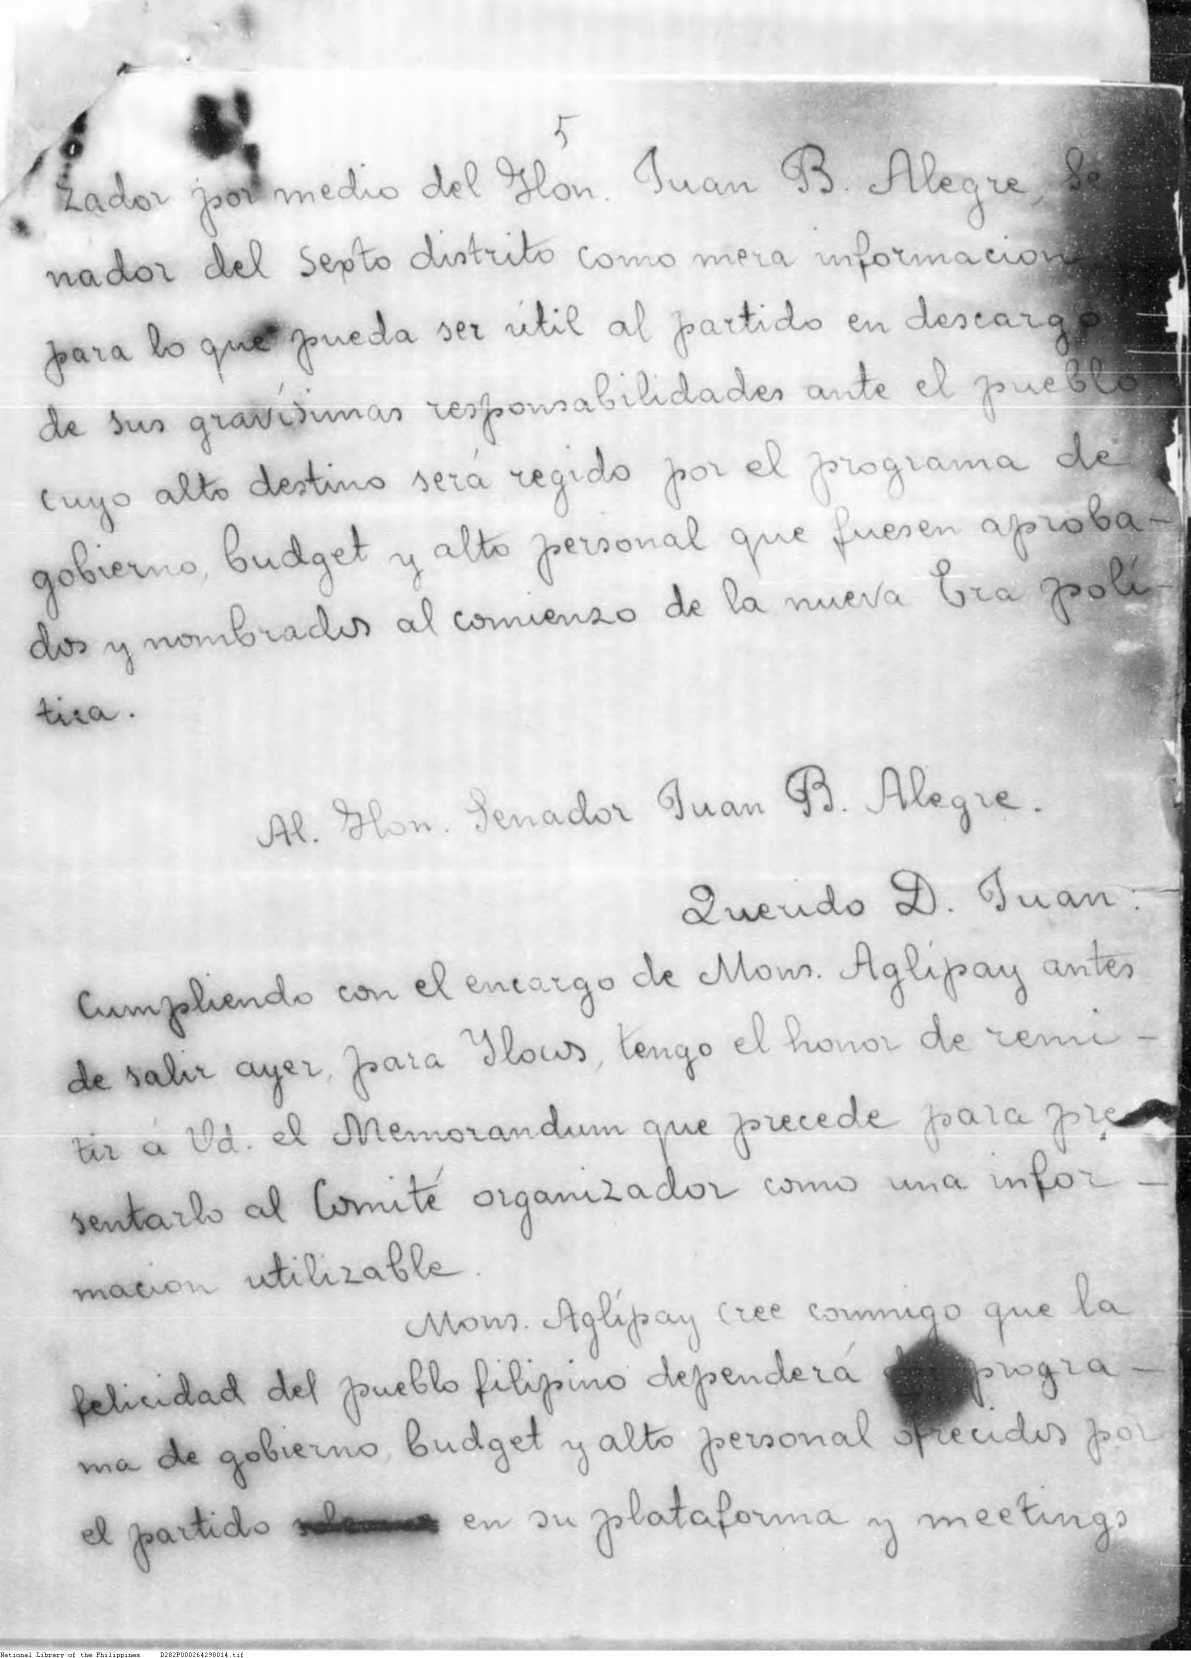 5
zador por medio del Hon. Juan B. Alegre, Se
nador del Septo distrito como mera informacion
para lo que pueda ser útil al partido en descargo
de sus gravísimas responsabilidades ante el pueblo
cuyo alto destino será regido por el programa de
gobierno, budget y alto personal que fuesen aproba-
dos y nombrados al comienzo de la nueva Era polí-
tica.
Al. Hon. Senador Juan B. Alegre.
Querido D. Juan:
Cumpliendo con el encargo de Mons. Aglípay antes
de salir ayer, para Ilocos, tengo el honor de remi-
tir á Vd. el Memorandum que precede para pre
sentarlo al Comité organizador como una infor-
macion utilizable.
Mons. Aglípay cree conmigo que la
felicidad del pueblo filipino dependerá progra-
ma de gobierno, budget y alto personal ofrecidos por
el partido en su plataforma y meetings
National Library of the Philippines D282P000264298014.tif